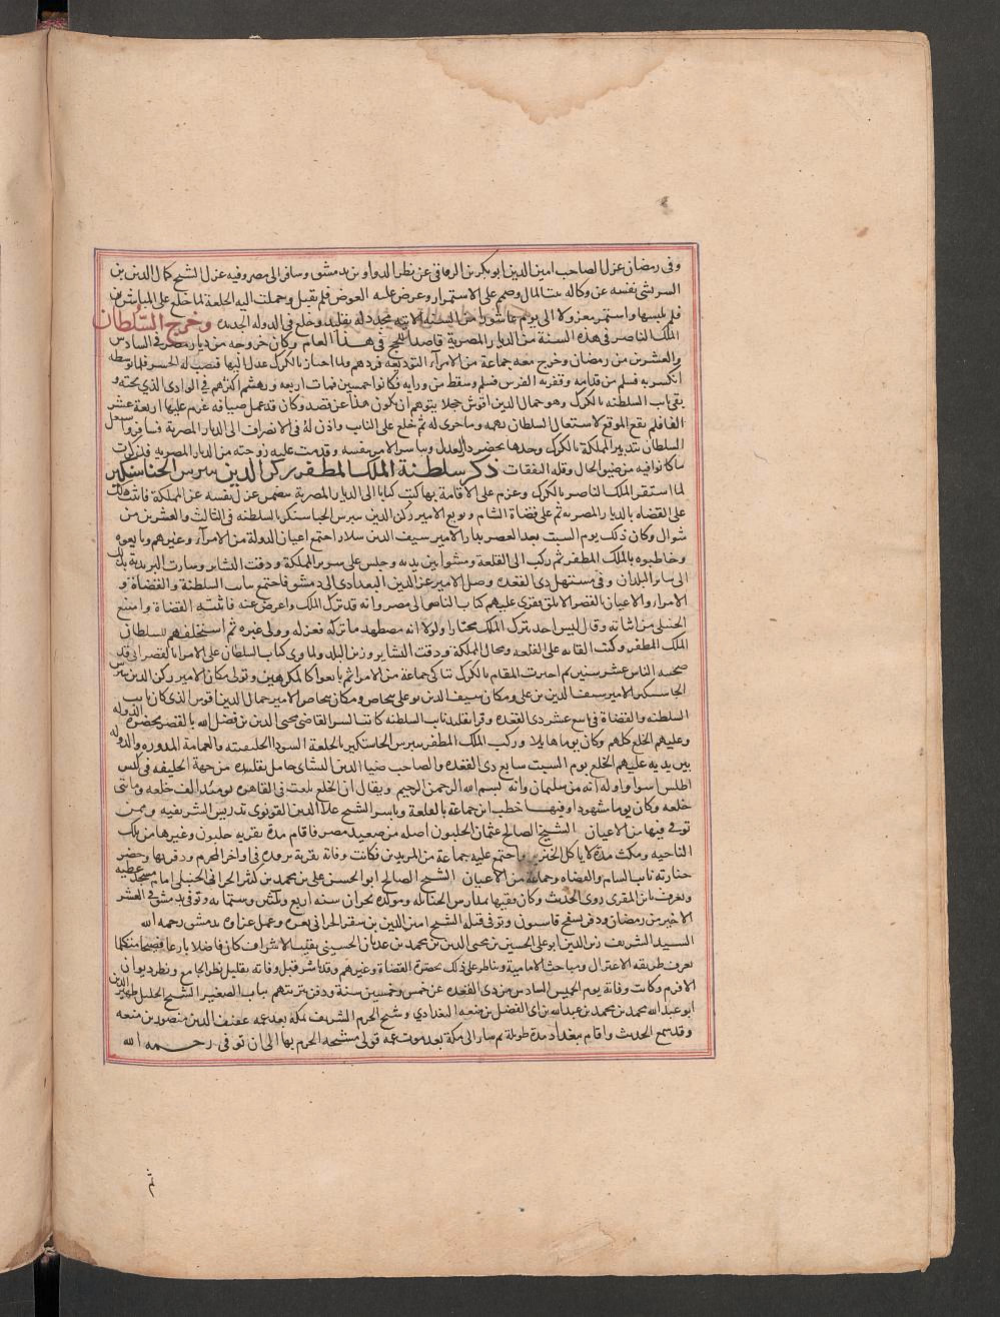 وفى رمضان عزل الصاحب امين الدين ابو بكر بن الرقاقى عن نظر الدواوين بدمشق وسافر الى مصر وفيه عزل الشيخ كمال الدين بن
الشريشى نفسه عن وكالة بيت المال وصمم على الاستمرار وعرض عليه العوض فلم يقبل وحملت اليه الخلعة لما خلع على المباشرين
فلم يلبسها واستمر معزولا الى يوم عاشورا من السنة الاتية فجدد له تقليد وخلع فى الدولة الجديدة وخرج السلطان
الملك الناصر فى هذه السنة من الديار المصرية قاصدا للحج فى هذا العام وكان خروجه من ديار مصر فى السادس
والعشرين من رمضان وخرج معه جماعة من الامراء لتوديعه فردهم ولما اجتاز بالكرك عدل اليها فنصب له الجسر فلما توسطه
انكسر به فسلم من قدامه وقفز به الفرس فسلم وسقط من ورايه وكانوا خمسين فمات اربعة وتهشم اكثرهم فى الوادى الذى تحته و
بقى نايب السلطنة بالكرك وهو جمال الدين اقوش خجلا يتوهم ان يكون هذا عن قصد وكان قد عمل ضيافة غرم عليها اربعة عشر
الفا فلم يقع الموقع لاشتغال السلطان بهمه وما جرى له ثم خلع على النايب واذن له فى الانصراف الى الديار المصرية فسافر واشتغل
السلطان بتدبير المملكة بالكرك وحدها يحضر دار العدل ويباشر الامور بنفسه وقدمت عليه زوجته من الديار المصرية فذكرت
ما كانوا فيه من ضيق الحال وقلة النفقات ذكر سلطنة الملك المظفر ركن الدين بيبرس الجاشنكير
لما استقر الملك الناصر بالكرك وعزم على الاقامة بها كتب كتابا الى الديار المصرية يتضمن عزل نفسه عن المملكة فاثبت ذلك
على القضاة بالديار المصرية ثم على قضاة الشام وبويع الامير ركن الدين بيبرس الجاشنكير بالسلطنة فى الثالث والعشرين من
شوال وكان ذلك يوم السبت بعد العصر بدار الامير سيف الدين سلار اجتمع اعيان الدولة من الامراء وغيرهم وبايعوه
وخاطبوه بالملك المظفر ثم ركب الى القلعة ومشوا بين يديه وجلس على سرير المملكة ودقت البشاير وسارت البريدية بذلك
الى ساير البلدان وفى مستهل ذى القعدة وصل الامير عز الدين البغدادى الى دمشق فاجتمع بنايب السلطنة والقضاة و
الامراء والاعيان بالقصر الابلق فقرى عليهم كتاب الناصر الى مصر وانه قد ترك الملك واعرض عنه فاثبته القضاة وامتنع
الحنبلى من اثباته وقال ليس احد يترك الملك مختارا ولولا انه مضطهد ما تركه فعزل وولى غيره ثم استحلفهم للسلطان
الملك المظفر وكتب العلامة على القلعة ومحال المملكة ودقت البشاير وزين البلد ولما قرى كتاب السلطان على الامراء بالقصر
صحبة الناس عشر سنين ثم اخترت المقام بالكرك تباكى جماعة من الامراء ثم بايعوا كالمكرهين وتولى مكان الامير ركن الدين بيبرس
الجاشنكير الامير سيف الدين بن على ومكان سيف الدين بوعلى بتخاص ومكان بتخاص الامير جمال الدين اقوش الذى كان نايب
السلطنة والقضاة فى تاسع عشر ذى القعدة وقرا تقليد نايب السلطنة كاتب السر القاضى محيى الدين بن فضل الله بالقصر بحضرة
وعليهم الخلع كلهم وكان يوما هايلا وركب الملك المظفر بيبرس الجاشنكير بالخلعة السودا الخليفتية والعمامة المدورة والدولة
بين يديه عليهم الخلع يوم السبت سابع ذى القعدة والصاحب ضيا الدين النشاى حامل تقليده من جهة الخليفة فى كيس
اطلس اسود واوله انه من سليمان وانه بسم الله الرحمن الرحيم ويقال ان الخلع بلغت فى القاهرة يوميذ الف خلعة ومايتى
خلعة وكان يوما مشهودا وفيها خطب ابن جماعة بالقلعة وباشر الشيخ علا الدين القونوى تدريس الشريفية وممن
توفى فيها من الاعيان الشيخ الصالح عثمان الحلبونى اصله من صعيد مصر فاقام مدة بقرية حلبون وغيرها من تلك
الناحية ومكث مدة لا ياكل الخبز واجتمع عليه جماعة من المريدين فكانت وفاته بقرية برزة فى اواخر المحرم ودفن بها وحضر
جنازته نايب الشام والقضاة وجماعة من الاعيان الشيخ الصالح ابو الحسن على بن محمد بن كثير الحرانى الحنبلى امام مسجد عطية
ويعرف بابن المقرى روى الحديث وكان فقيها بمدارس الحنابلة ومولده بحران سنة اربع وثلثين وستماية وتوفى بدمشق فى العشر
الاخير من رمضان ودفن بسفح قاسيون وتوفى قبله الشيخ امين الدين بن سقر الحرانى بغزة وعمل عزاوه بدمشق رحمه الله
السيد الشريف زين الدين ابو على الحسين بن محيى الدين بن محمد بن عدنان الحسينى نقيب الاشراف كان فاضلا بارعا فصيحا متكلما
يعرف طريقة الاعتزال ومباحث الامامية ويناظر على ذلك بحضرة القضاة وغيرهم وقد باشر قبل وفاته بقليل نظر الجامع ونظر ديوان
الافرم وكانت وفاته يوم الخميس السادس من ذى القعدة عن خمس وخمسين سنة ودفن بتربتهم بباب الصغير الشيخ الجليل ظهير الدين
ابو عبد الله محمد بن محمد بن عبد الله بن ابى الفضل بن منعه البغدادى وشيخ الحرم الشريف بمكة بعد عمه عفيف الدين منصور بن منعه
وقد سمع الحديث واقام ببغداد مدة طويلة ثم سار الى مكة بعد موت عمه فولى مشيخة الحرم بها الى ان توفى رحمه الله
ثم